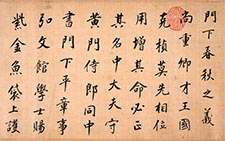 門下春秋之義
尚重卿才王國
克楨莫先相位
用增其命必正
其名中大夫守
黃門侍郎同中
書門下平章事
弘文館學士賜
紫金魚袋上護